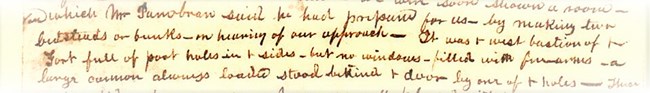 soon shown a room –
which Mr Pambran said he had prepared for us – by making two
bedsteads or bunks – on hearing of our approach – It was t west bastion of t
Fort full of port holes in t sides – but no windows – filled with firearms – a
large cannon always loaded stood behind t door by one of t holes –